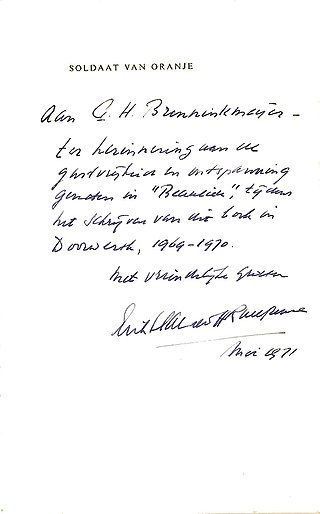 SOLDAAT VAN ORANJE
Aan G. H. Brenninkmeijer –
ter herinnering aan de
gastvrijheid en ontspanning
genoten in "Beaulieu", tijdens
het schrijven van dit boek in
Doorwerth, 1969-1970.
Met vriendelijke groeten
Erik Hazelhoff Roelfzema
Mei 1971